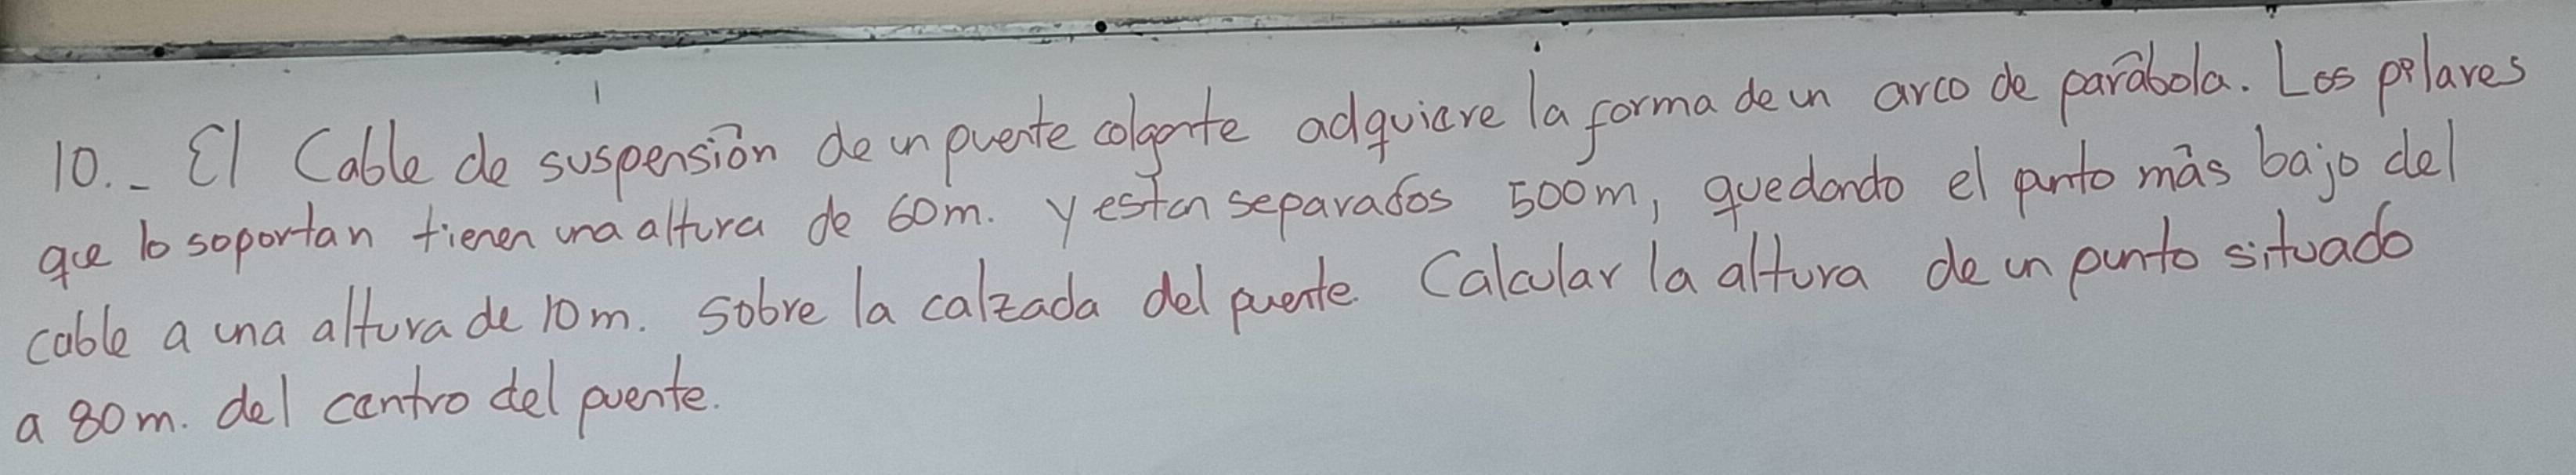 10._ El Cable de suspensión de un puente colgante adquiere la forma de un arco de parábola. Los pilares
que lo soportan tienen una altura de 60m. y estan separados 500m, quedando el punto más bajo del
cable a una altura de 10m. sobre la calzada del puente. Calcular la altura de un punto situado
a 80m. del centro del puente.